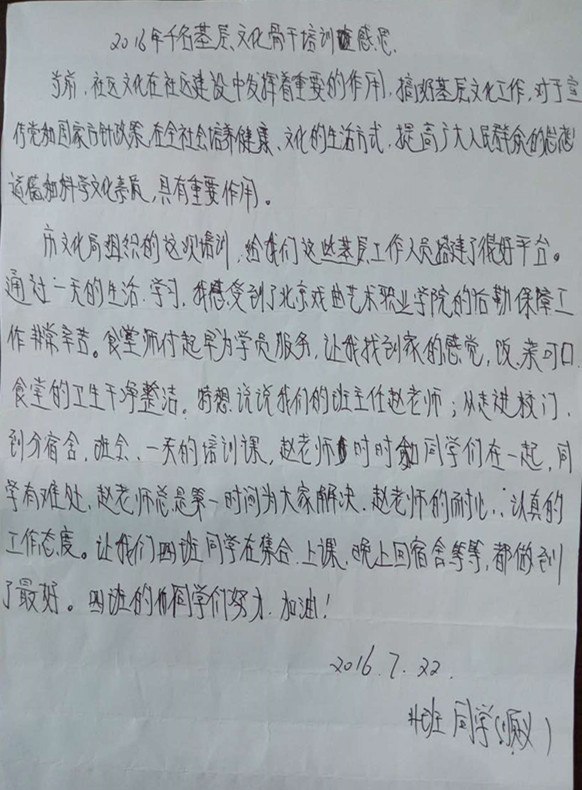 2016年千名基层文化骨干培训感思.
当前,社区文化在社区建设中发挥着重要的作用,搞好基层文化工作,对于宣
传党和国家方针政策,在全社会培养健康、文化的生活方式,提高广大人民群众的思想
道德和科学文化素质,具有重要作用。
市文化局组织的这次培训,给我们这些基层工作人员搭建了很好平台。
通过一天的生活.学习,我感受到了北京戏曲艺术职业学院的后勤保障工
作非常辛苦。食堂师付起早为学员服务,让我找到家的感觉,饭.菜可口.
食堂的卫生干净整洁。特想说说我们的班主任赵老师;从走进校门、
到分宿舍,班会、一天的培训课,赵老师时时和同学们在一起,同
学有难处,赵老师总是第一时间为大家解决.赵老师的耐心、认真的
工作态度。让我们四班同学在集合.上课.晚上回宿舍等等,都做到
了最好。四班的同学们努力.加油!
2016.7.22.
班 同学